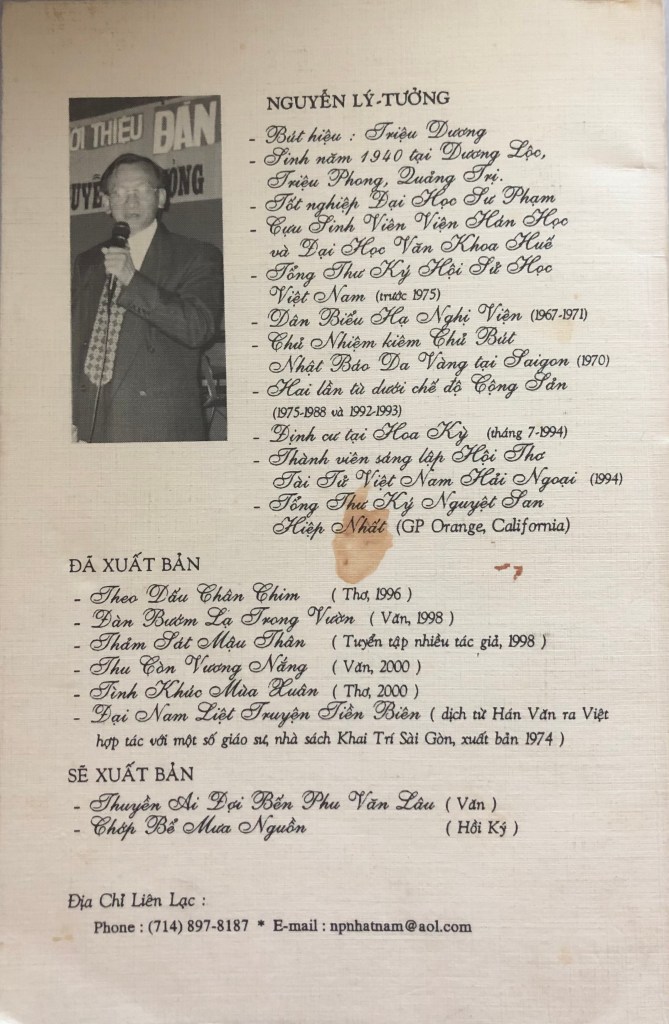 ỚI THIỆU ĐÀN
UYỄ
ÒNG
NGUYỄN LÝ-TƯỞNG
- Bút hiệu : Triệu Dương
- Sinh năm 1940 tại Dương Lộc,
Triệu Phong, Quảng Trị.
- Tốt nghiệp Đại Học Sư Phạm
- Cựu Sinh Viên Viện Hán Học
và Đại Học Văn Khoa Huế
- Tổng Thư Ký Hội Sử Học
Việt Nam (trước 1975)
- Dân Biểu Hạ Nghị Viện (1967-1971)
- Chủ Nhiệm kiêm Chủ Bút
Nhật Báo Da Vàng tại Saigon (1970)
- Hai lần tù dưới chế độ Cộng Sản
(1975-1988 và 1992-1993)
- Định cư tại Hoa Kỳ (tháng 7-1994)
- Thành viên sáng lập Hội Thơ
Tài Tử Việt Nam Hải Ngoại (1994)
- Tổng Thư Ký Nguyệt San
Hiệp Nhất (GP Orange, California)
ĐÃ XUẤT BẢN
- Theo Dấu Chân Chim ( Thơ, 1996 )
- Đàn Bướm Lạ Trong Vườn ( Văn, 1998 )
- Thảm Sát Mậu Thân ( Tuyển tập nhiều tác giả, 1998 )
- Thu Còn Vương Nắng ( Văn, 2000 )
- Tình Khúc Mùa Xuân ( Thơ, 2000 )
- Đại Nam Liệt Truyện Tiền Biên ( dịch từ Hán Văn ra Việt
hợp tác với một số giáo sư, nhà sách Khai Trí Sài Gòn, xuất bản 1974 )
SẼ XUẤT BẢN
- Thuyền Ai Đợi Bến Phu Văn Lâu ( Văn )
- Chớp Bể Mưa Nguồn ( Hồi Ký )
Địa Chỉ Liên Lạc :
Phone : (714) 897-8187 * E-mail : npnhatnam@aol.com